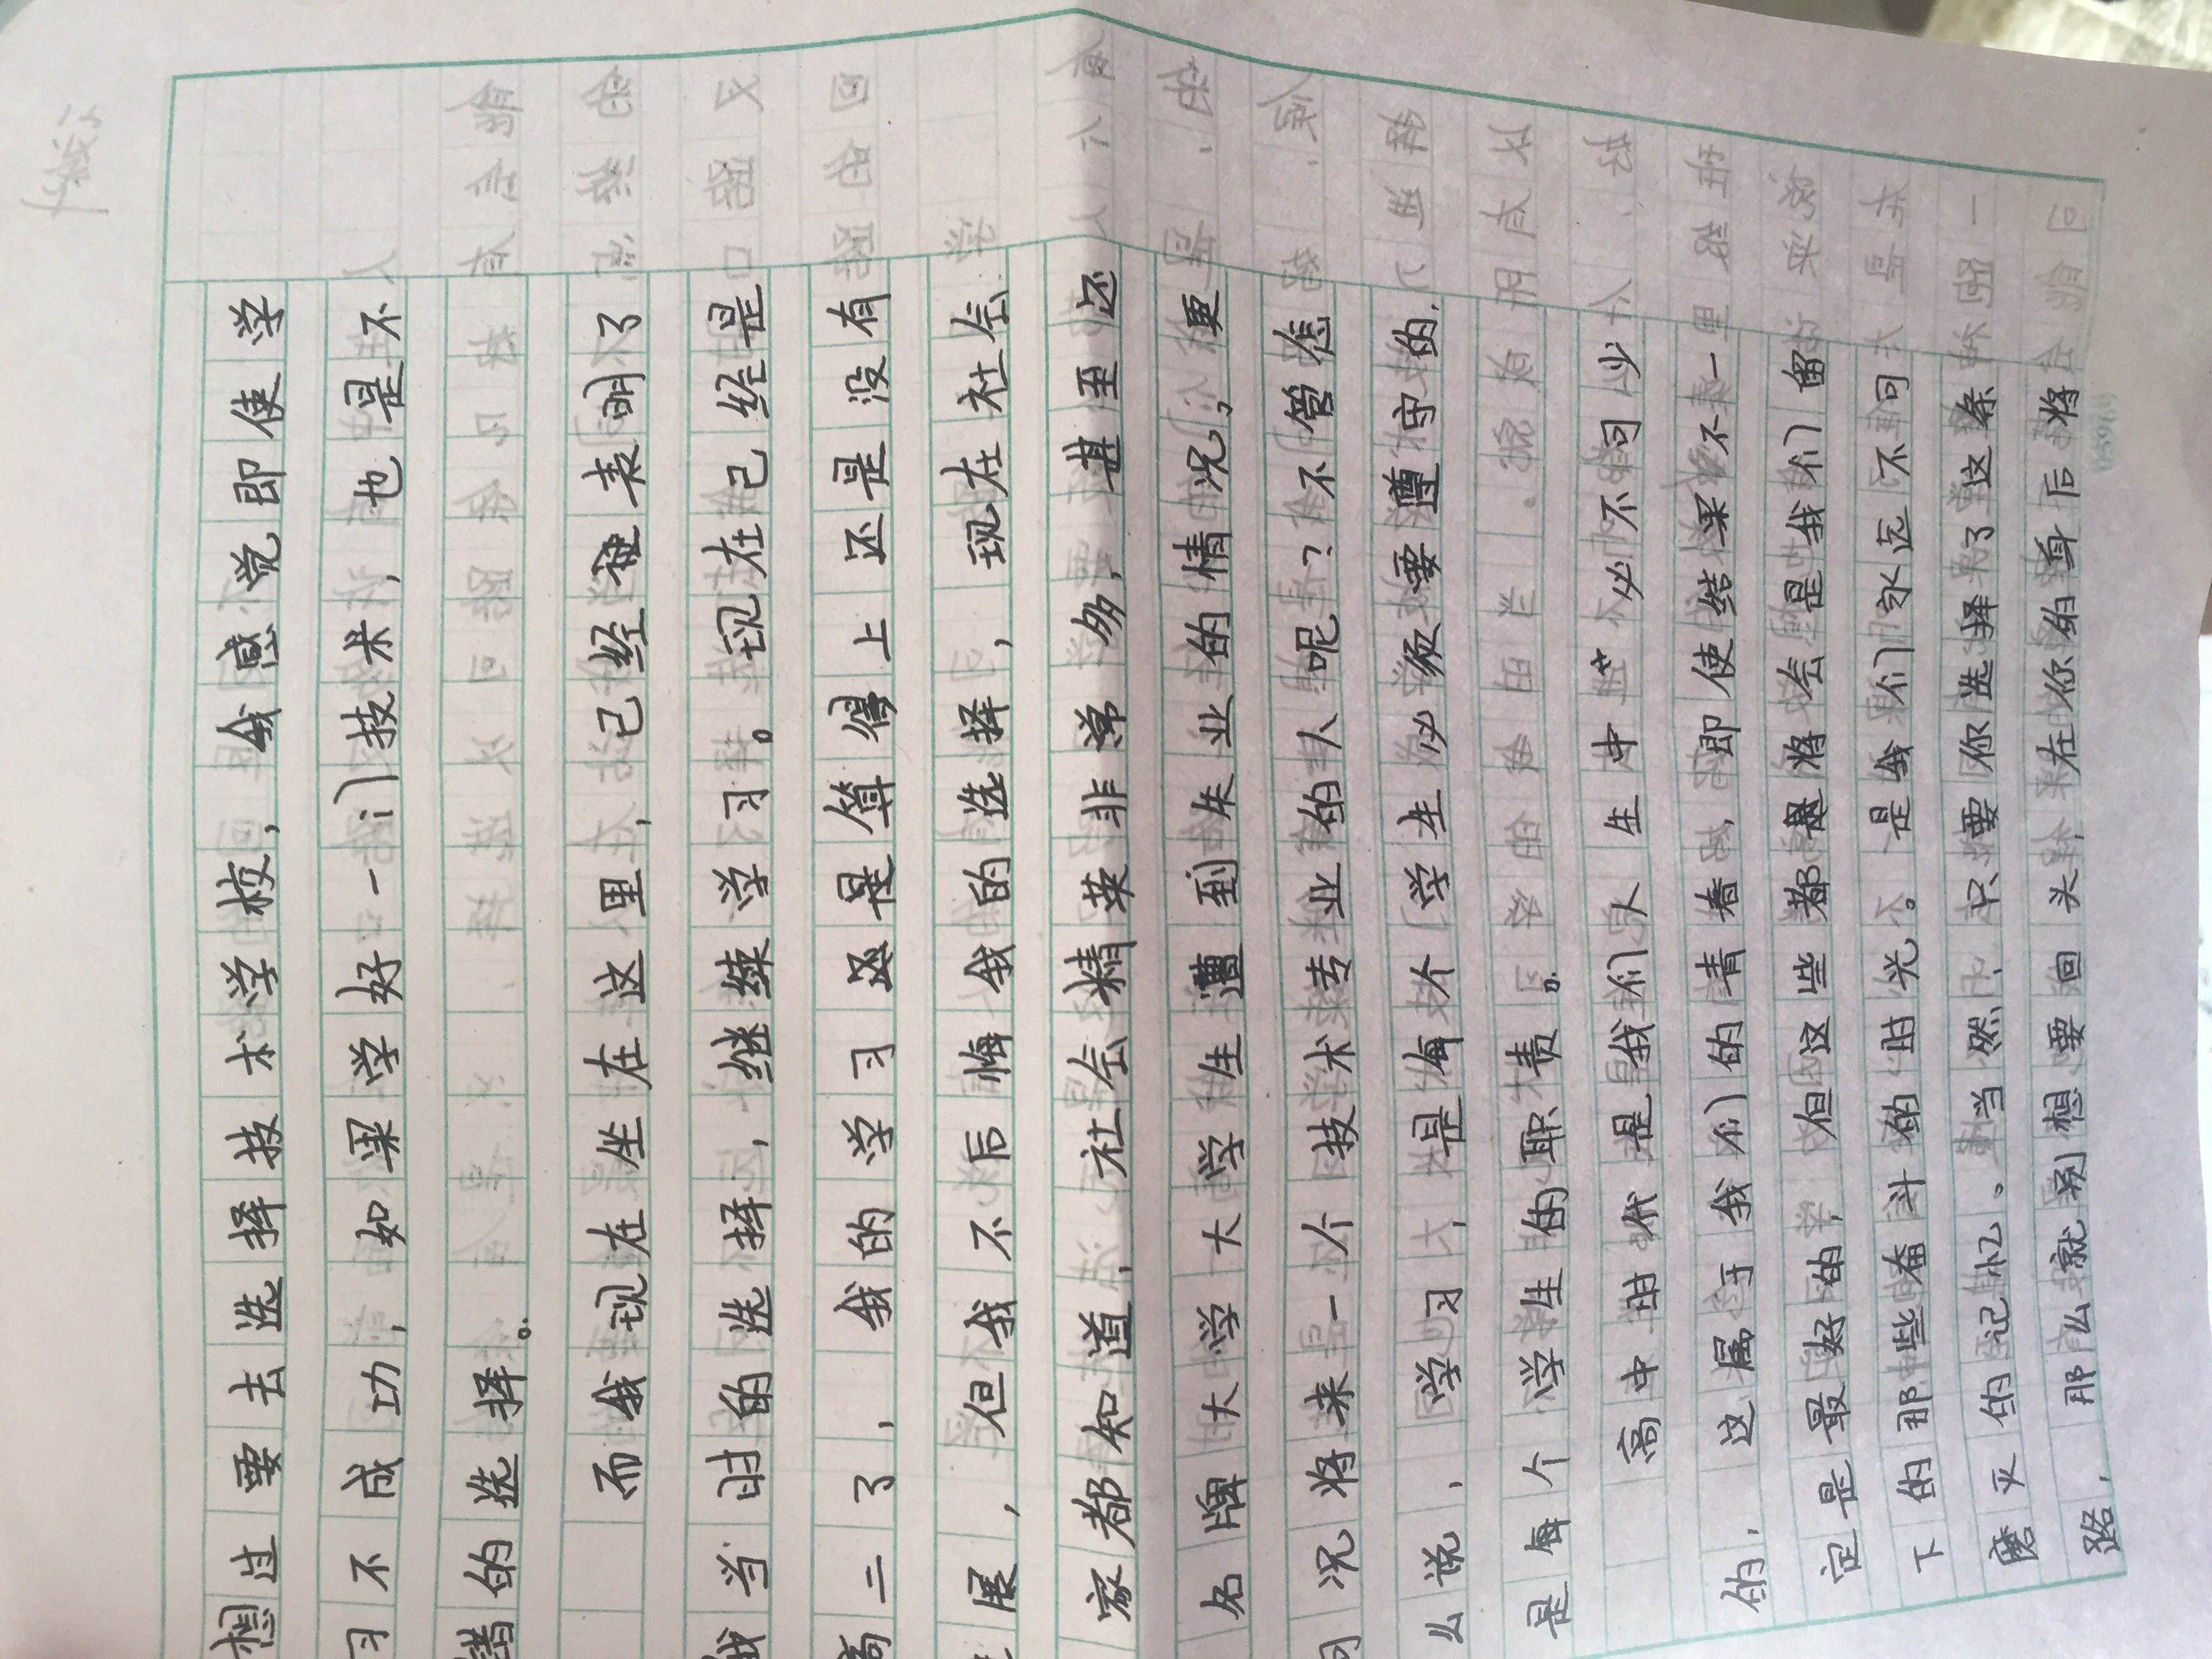 想过要去选择技术学校，我感觉即使学
习不成功，如果学好一门技术，也是不
错的选择。
而我现在坐在这里，已经表明了
我当时的选择，继续学习。现在已经是
高二了，我的学习还是算得上还是没有
展，但我不后悔我的选择，现在社会
家都知道，社会精英非常多，甚至还
名牌大学大学生遭到失业的情况，更
况将来一个技术专业的人呢？不管怎
么说，学习，是每个学生必须要遵守的，
是每个学生的职责。
高中时代是我们人生中必不可少
的，这属于我们的青春，即使结果不一
定是最好的，但这些都是将会是我们留
下的那些奋斗的时光。是我们永远不可
磨灭的记忆。当然，只要你选择了这条
路，那么就别想要回头，在你的身后将